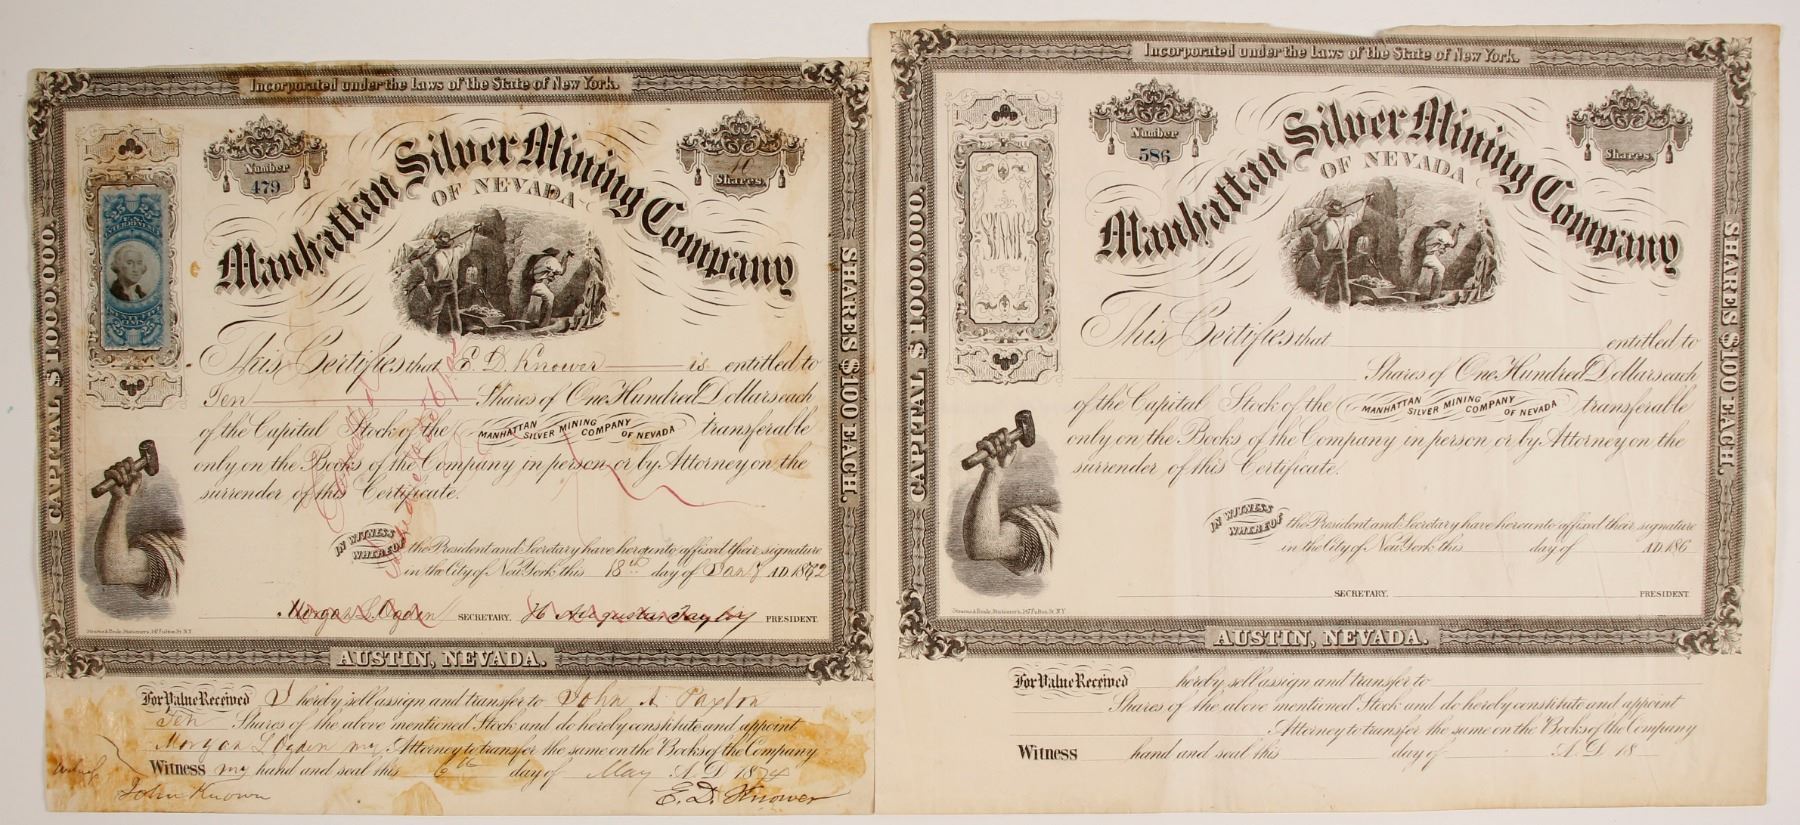 Incorporated under the Laws of the State of New York.
Number
479
10
Shares.
Manhattan Silver Mining Company
OF NEVADA
25 25
U.S. INTER. REVENUE
25 25
CAPITAL $1,000,000.
SHARES $100 EACH.
This Certifies that E. D. Knower is entitled to
Ten Shares of One Hundred Dollars each
of the Capital Stock of the MANHATTAN SILVER MINING COMPANY OF NEVADA transferable
only on the Books of the Company in person or by Attorney on the
surrender of this Certificate.
IN WITNESS WHEREOF the President and Secretary have hereunto affixed their signature
in the City of New York, this 18th day of Jany A.D. 1872
Morgan L. Ogden SECRETARY. H Augustus Taylor PRESIDENT.
Stearns & Beale, Stationers, 147 Fulton St. N.Y.
AUSTIN, NEVADA.
For Value Received I hereby sell assign and transfer to John A. Paxton
Ten Shares of the above mentioned Stock and do hereby constitute and appoint
Morgan L Ogden my Attorney to transfer the same on the Books of the Company
Witness my hand and seal this 6th day of May A.D. 1874
John Knower
E. D. Knower
Incorporated under the Laws of the State of New York.
Number
586
Shares.
Manhattan Silver Mining Company
OF NEVADA
STAMP
CAPITAL $1,000,000.
SHARES $100 EACH.
This Certifies that entitled to
Shares of One Hundred Dollars each
of the Capital Stock of the MANHATTAN SILVER MINING COMPANY OF NEVADA transferable
only on the Books of the Company in person or by Attorney on the
surrender of this Certificate.
IN WITNESS WHEREOF the President and Secretary have hereunto affixed their signature
in the City of New York, this day of A.D. 186
SECRETARY. PRESIDENT
Stearns & Beale, Stationers, 147 Fulton St. N.Y.
AUSTIN, NEVADA.
For Value Received hereby sell assign and transfer to
Shares of the above mentioned Stock and do hereby constitute and appoint
Attorney to transfer the same on the Books of the Company
Witness hand and seal this day of A.D. 18